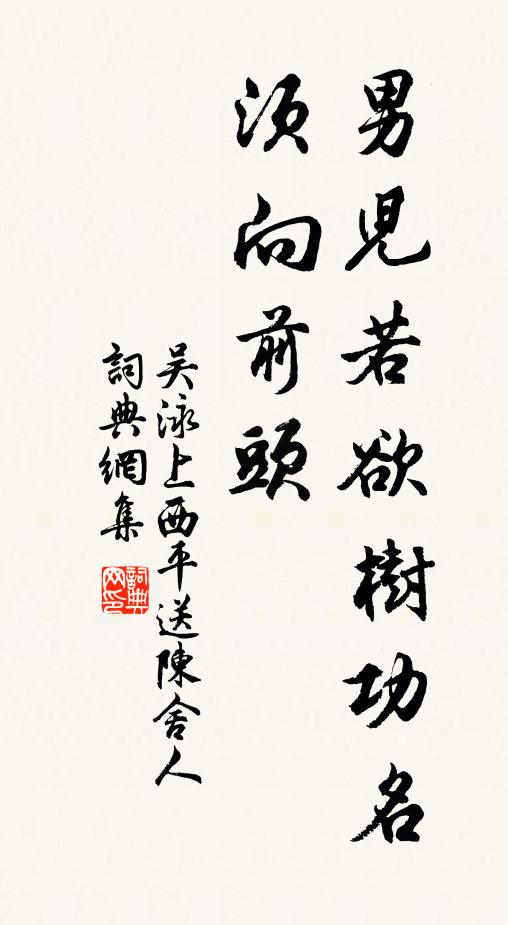 男児若欲樹功名
須向前頭
吳泳上西平送陳舍人
詞典網集
詞典网印